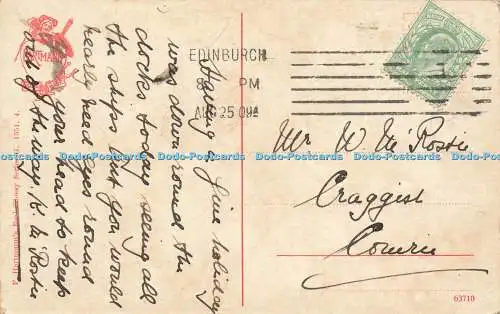 EDINBURGH
8 PM
AUG 25 09
Having a fine holiday
was down round the
docks today seeing all
the ships but you would
nearly need eyes round
your head to keep
out of the way. K. McRostie
Mr W McRostie
Craggish
Comrie
Dodo-Postcards Dodo-Postcards Dodo-Postcards Dodo-Postcards Dodo-Postcards
63710